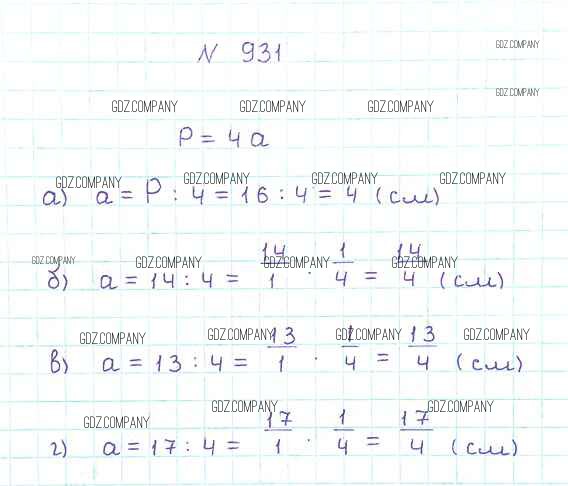 N 931
GDZ.COMPANY
GDZ.COMPANY
GDZ.COMPANY GDZ.COMPANY GDZ.COMPANY
P = 4a
GDZ.COMPANY GDZ.COMPANY GDZ.COMPANY GDZ.COMPANY
а) a = P : 4 = 16 : 4 = 4 (см)
GDZ.COMPANY GDZ.COMPANY GDZ.COMPANY GDZ.COMPANY
б) a = 14 : 4 = 14/1 · 1/4 = 14/4 (см)
GDZ.COMPANY GDZ.COMPANY GDZ.COMPANY GDZ.COMPANY
в) a = 13 : 4 = 13/1 · 1/4 = 13/4 (см)
GDZ.COMPANY GDZ.COMPANY GDZ.COMPANY
г) a = 17 : 4 = 17/1 · 1/4 = 17/4 (см)